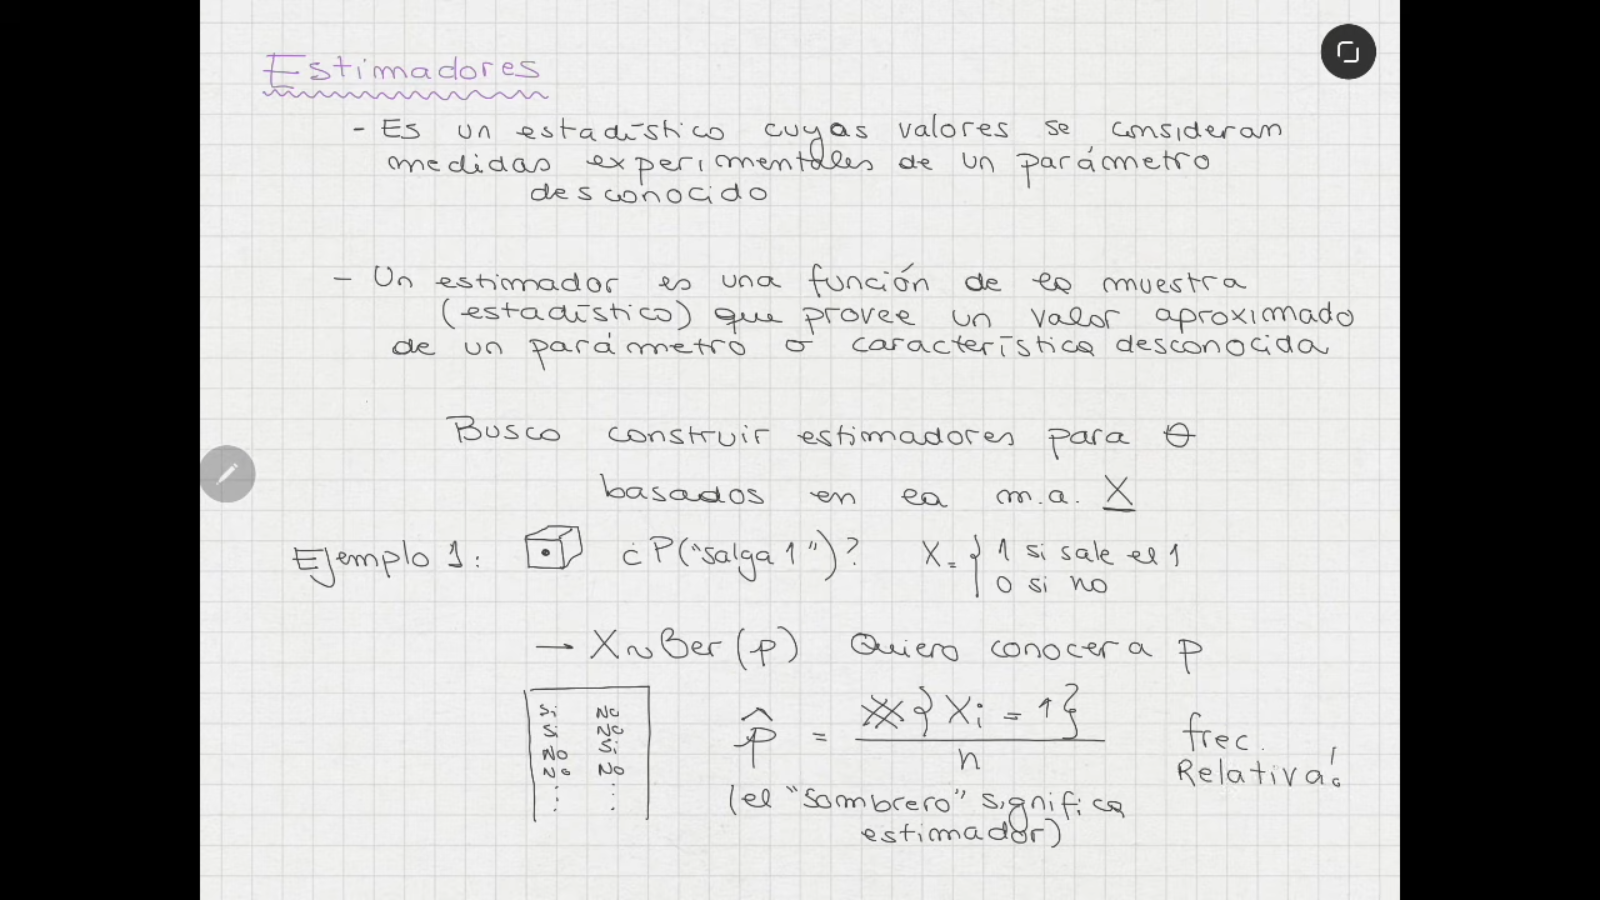 Estimadores
- Es un estadístico cuyas valores se consideran
medidas experimentales de un parámetro
desconocido
- Un estimador es una función de la muestra
(estadístico) que provee un valor aproximado
de un parámetro o característica desconocida
Busco construir estimadores para θ
basados en la m.a. X
Ejemplo 1: ¿P("salga 1")? X = { 1 si sale el 1
0 si no
→ X ~ Ber(p) Quiero conocer a p
Si No
Si No
No Si
No No
... ...
p̂ = #{Xi = 1} / n frec. Relativa!
(el "sombrero" significa
estimador)